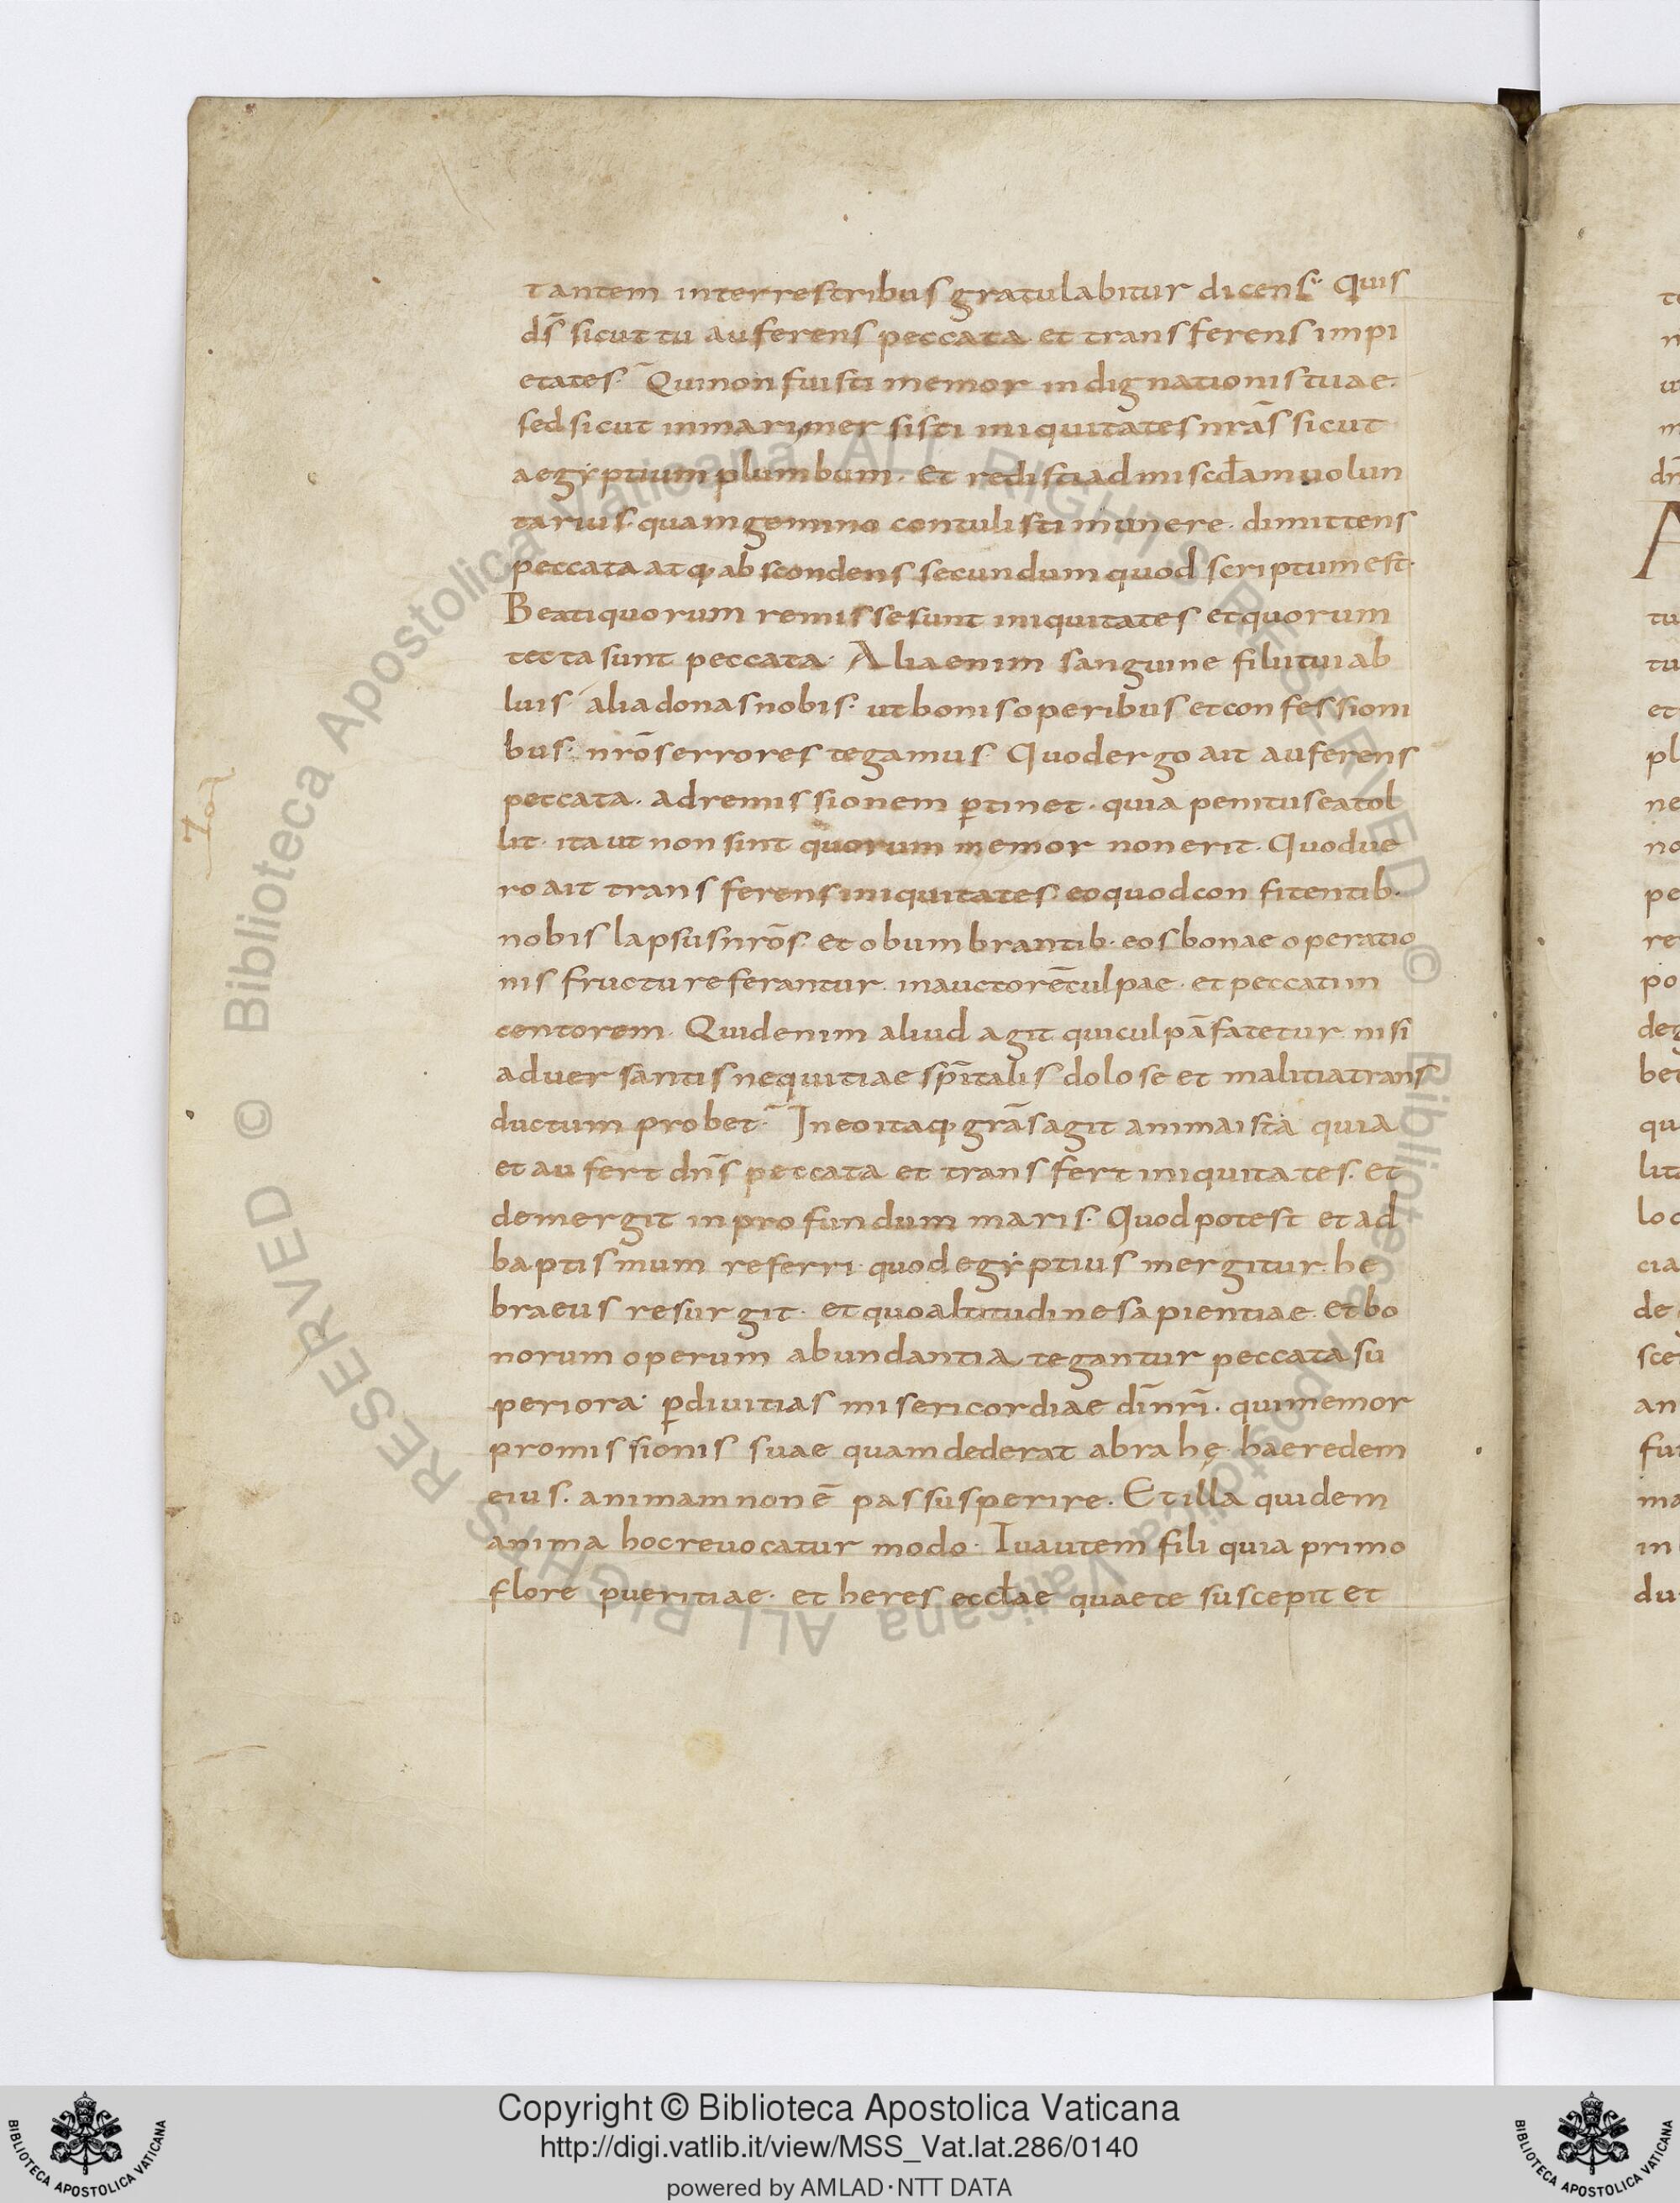 tantem interrestribus gratulabitur dicens Quis
ds̄ sicut tu auferens peccata et transferens impi
etates. Qui non fuisti memor indignationis tuae.
sed sicut inmari mersisti iniquitates nrās sicut
aegyptium plumbum. Et redisti ad miscd̄am uolun
tarius. quam gemino contulisti munere. dimittens
peccata atq; abscondens secundum quod scriptum est.
Beati quorum remisse sunt iniquitates et quorum
tecta sunt peccata. Alia enim sanguine filii tui ab
luis alia donas nobis. ut bonis operibus et confessioni
bus. nrōs errores tegamus. Quod ergo ait auferens
peccata. ad remissionem p̄tinet. quia penitus ea tol
lit. ita ut non sint quorum memor non erit. Quod ue
ro ait transferens iniquitates. eo quod confitentib.
nobis lapsus nrōs. et obumbrantib. eos bonae operatio
nis fructu referantur. in auctorē culpae. et peccati in
centorem. Quid enim aliud agit qui culpā fatetur. nisi
aduersantis nequitiae sp̄italis dolo se et malitia trans
ductum probet. In eo itaq; grās agit anima ista quia
et aufert dn̄s peccata et transfert iniquitates. et
demergit in profundum maris. Quod potest et ad
baptismum referri. quod egyptius mergitur. he
braeus resurgit. et quo altitudine sapientiae. et bo
norum operum abundantia tegantur peccata su
periora. p̄ diuitias misericordiae dīnrī. qui memor
promissionis suae quam dederat abrahę. haeredem
eius. animam non ē passus perire. Et illa quidem
anima hoc reuocatur modo. Tu autem fili quia primo
flore pueritiae. et heres eccl̄ae quae te suscepit et
© Biblioteca Apostolica Vaticana ALL RIGHTS RESERVED © Biblioteca Apostolica Vaticana ALL RIGHTS RESERVED
Copyright © Biblioteca Apostolica Vaticana
http://digi.vatlib.it/view/MSS_Vat.lat.286/0140
powered by AMLAD·NTT DATA
BIBLIOTECA APOSTOLICA VATICANA
BIBLIOTECA APOSTOLICA VATICANA